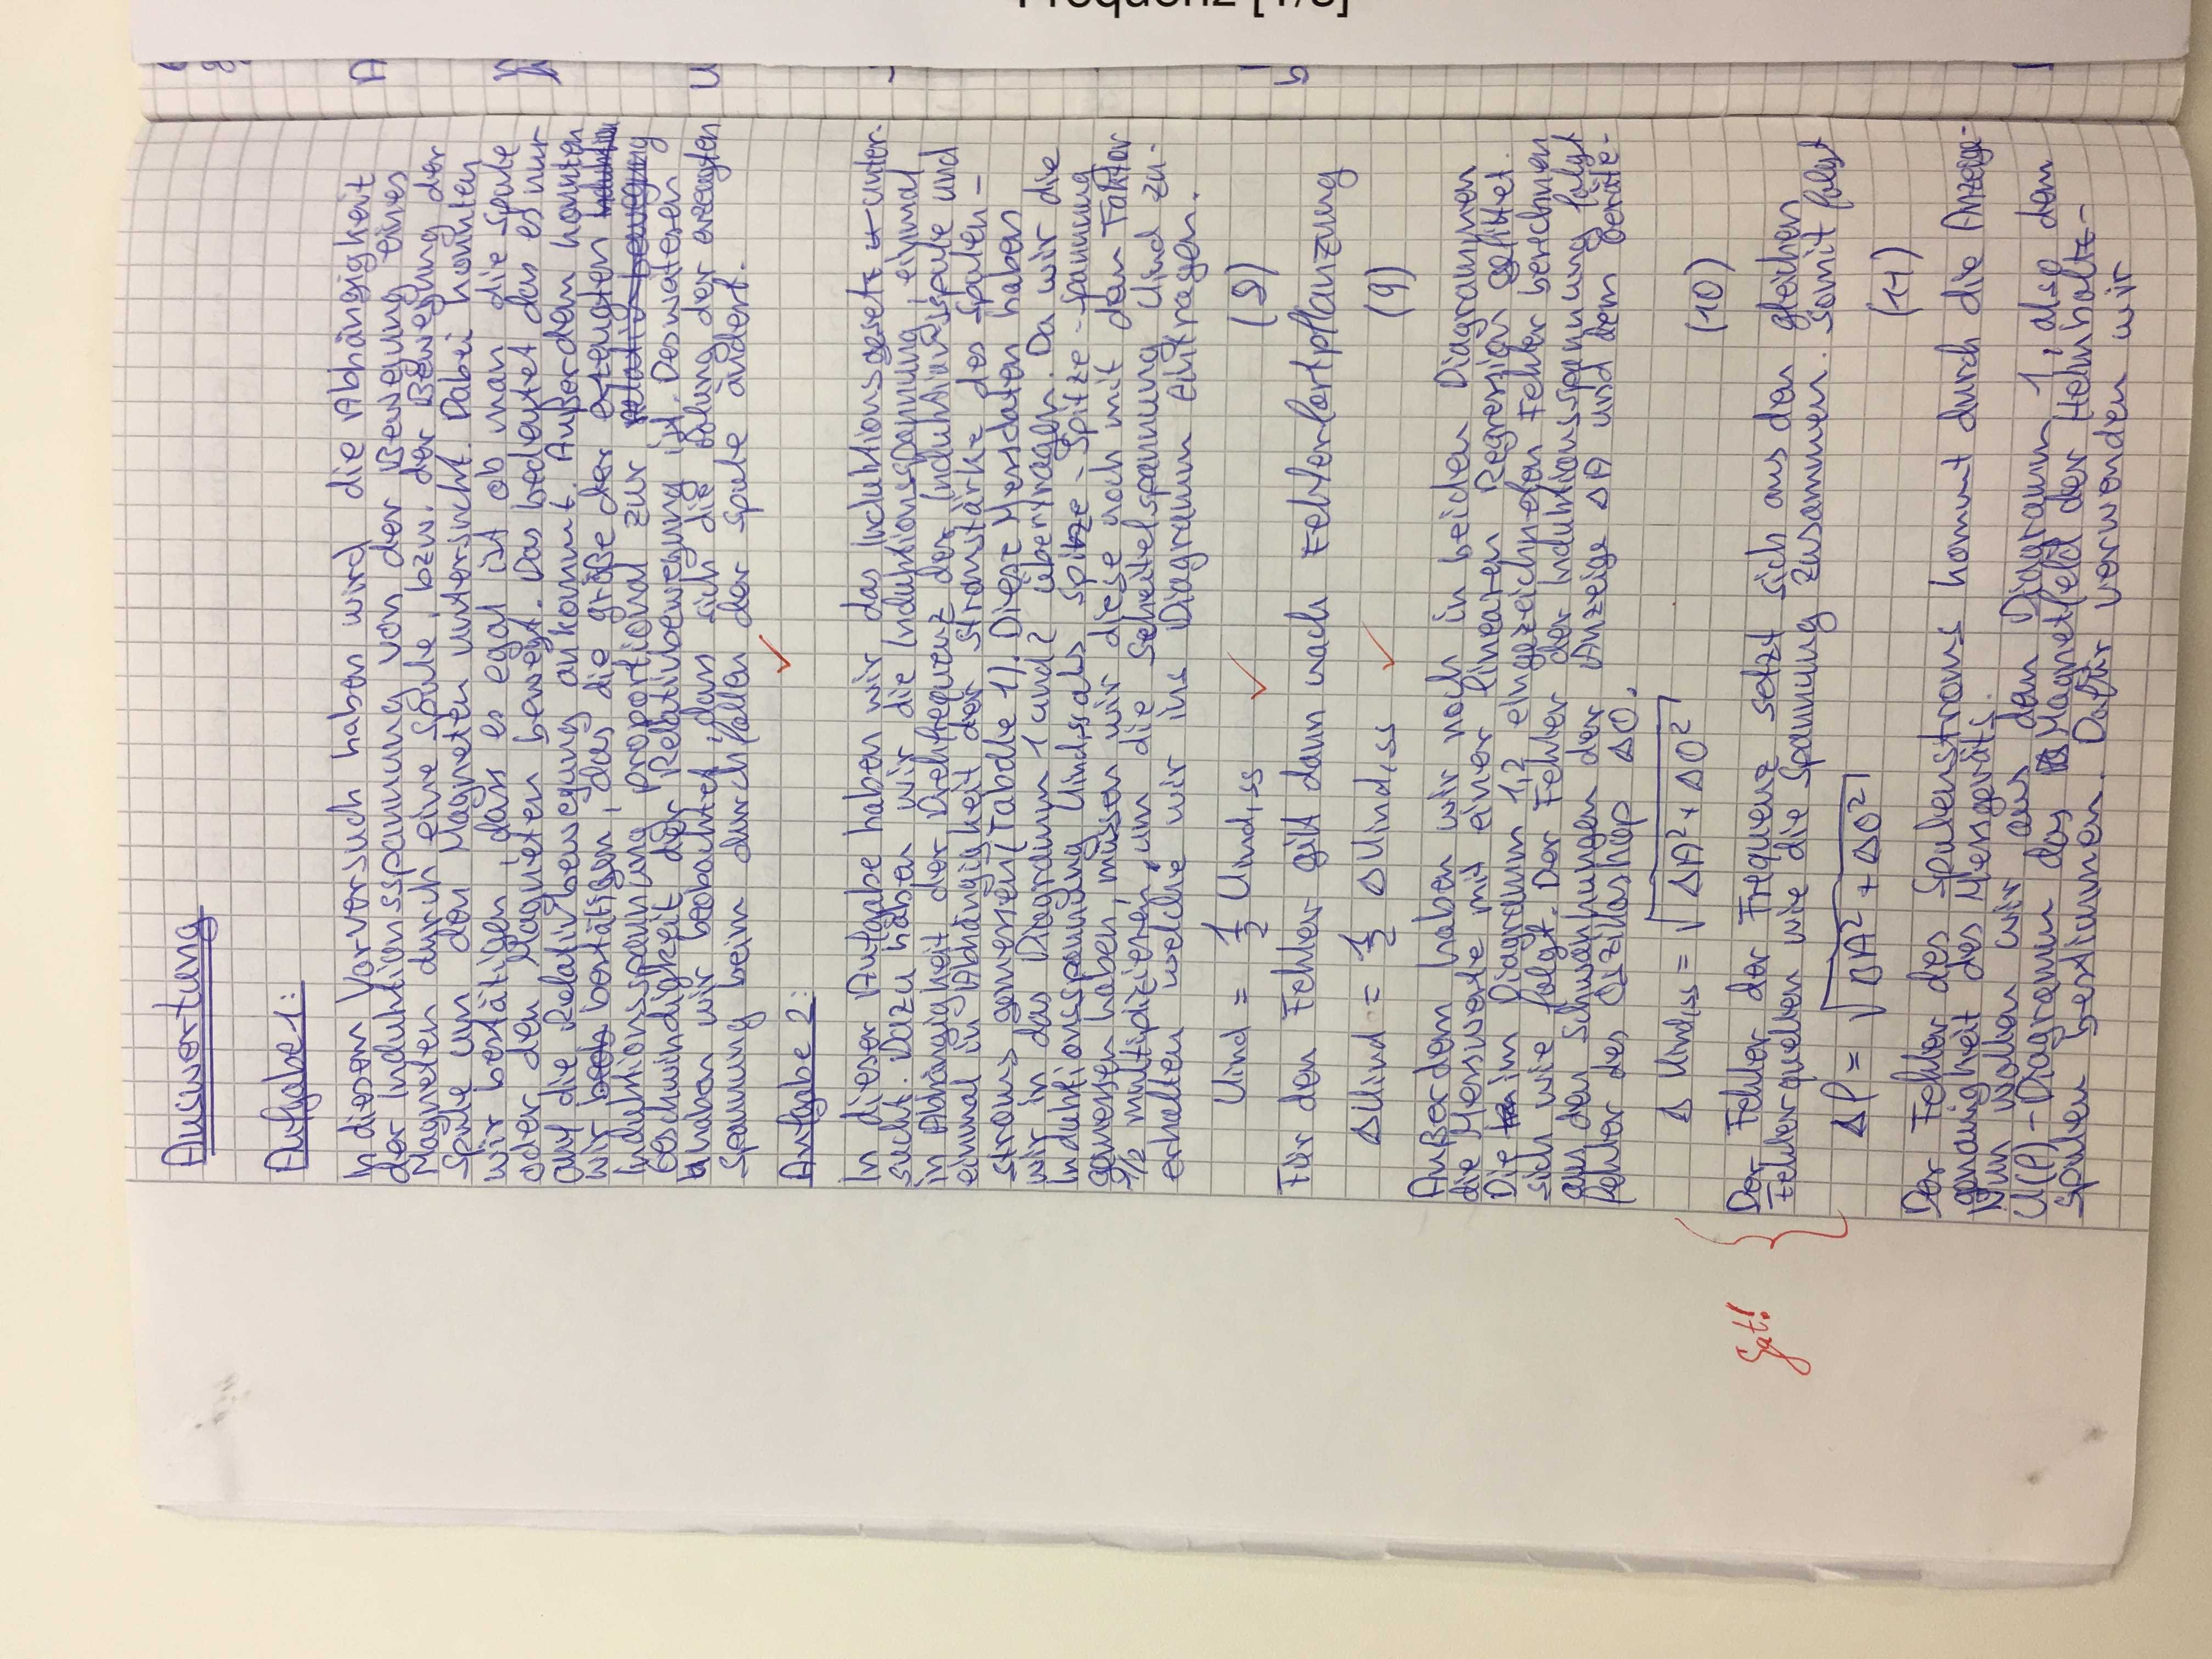 Auswertung
Aufgabe 1:
In diesem Vorversuch haben wird die Abhängigkeit
der Induktionsspannung von der Bewegung eines
Magneten durch eine Spule, bzw. der Bewegung der
Spule um den Magneten untersucht. Dabei konnten
wir bestätigen, dass es egal ist ob man die Spule
oder den Magneten bewegt. Das bedeutet das es nur
auf die Relativbewegung ankommt. Außerdem konnten
wir bestätigen, das die größe der erzeugten
Induktionsspannung proportional zur
Geschwindigkeit der Relativbewegung ist. Desweiteren
haben wir beobachtet, dass sich die Polung der erzeugten
Spannung beim durchfallen der Spule ändert.
Aufgabe 2:
In dieser Aufgabe haben wir das Induktionsgesetz unter-
sucht. Dazu haben wir die Induktionsspannung, einmal
in Abhängigkeit der Drehfrequenz der Induktionsspule und
einmal in Abhängigkeit der Stromstärke des Spulen-
stroms gemessen (Tabelle 1). Diese Messdaten haben
wir in das Diagramm 1 und 2 übertragen. Da wir die
Induktionsspannung Uind,ss als Spitze-Spitze-Spannung
gemessen haben, müssen wir diese noch mit dem Faktor
1/2 multiplizieren, um die Scheitelspannung Uind zu-
erhalten welche wir ins Diagramm eintragen.
Uind = 1/2 Uind,ss (8)
Für den Fehler gilt dann nach Fehlerfortpflanzung
ΔUind = 1/2 ΔUind,ss (9)
Außerdem haben wir noch in beiden Diagrammen
die Messwerte mit einer linearen Regression gefittet.
Die im Diagramm 1,2 eingezeichneten Fehler berechnen
sich wie folgt. Der Fehler der Induktionsspannung folgt
aus den Schwankungen der Anzeige ΔA und dem Geräte-
fehler des Oszilloskop ΔO.
Δ Uind,ss = √(ΔA² + ΔO²) (10)
Der Fehler der Frequenz setzt sich aus den gleichen
Gut!
Fehlerquellen wie die Spannung zusammen. Somit folgt
Δf = √(ΔA² + ΔO²) (11)
Der Fehler des Spulenstroms kommt durch die Anzeige-
genauigkeit des Messgeräts.
Nun wollen wir aus dem Diagramm 1, also dem
U(f)-Diagramm das Magnetfeld der Helmholtz-
spulen bestimmen. Dafür verwenden wir